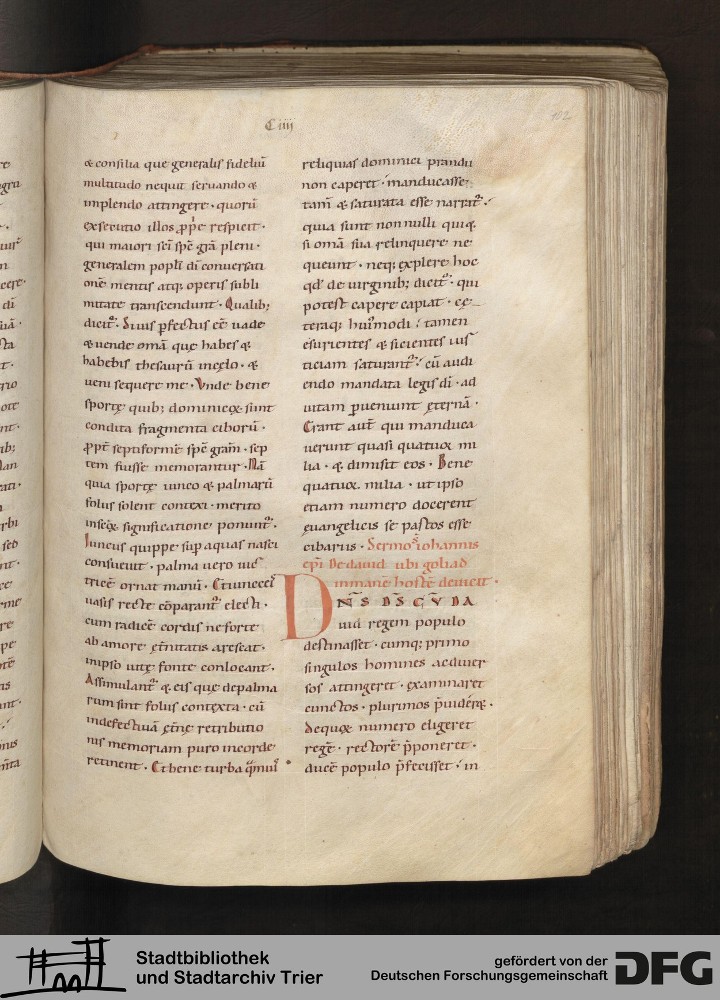 Ciiii
102
& consilia que generalis fideliū
multitudo nequit seruando &
implendo attingere · quorū
exsecutio illos ꝓp'e respicit ·
qui maiori sc̄i sp̄c grā pleni ·
generalem popl'i dī conuersati
onē mentis atq; operis subli
mitate transcendunt · Qualib;
dicit' · Siuis ꝑfectus eē uade
& uende om̄a quę habes &
habebis thesaurū incęlo · &
ueni sequere me · Vnde bene
sportę quib; dominicę sunt
condita fragmenta ciborū ·
ꝓpt septiformē sp̄c gram · sep
tem fuisse memorantur · Nā
quia sportę iunco & palmarū
foliis solent contexi · merito
insc̄ꝝ significatione ponunt' ·
Iuncus quippe sup aquas nasci
consueuit · palma uero uic
tricē ornat manū · Et iunceis
uasis recte cōparant' electi ·
cum radicē cordis ne forte
ab amore ęt̄nitatis arescat ·
inipso uitę fonte conlocant ·
Assimulant' & eis quę depalma
rum sunt foliis contexta · cū
indefectiuā ęt̄nę retributio
nis memoriam puro incorde
retinent · Et bene turba
reliquias dominici prandii
non caperet · manducasse
tam̄ & saturata esse narrat' ·
quia sunt nonnulli qui &
si om̄a sua relinquere ne
queunt · neq; explere hoc
qd' de uirginib; dicit' · qui
potest capere capiat · cę
teraq; hui'modi · tamen
esurientes & sicientes ius
ticiam saturant' · cū audi
endo mandata legis dī · ad
uitam ꝑueniunt ęternā ·
Erant aut̄ qui manduca
uerunt quasi quatuor mi
lia · & dimisit eos · Bene
quatuor milia · ut ipso
etiam numero docerent
euangelicis se pastos esse
cibariis · Sermo s iohannis
ep̄i De dauid ubi goliad
inmanē hostē deiecit ·
DN̄S D̄S CV̄ DA
uid regem populo
destinasset · cumq; primo
singulos homines ac diuer
sos attingeret · examinaret
cunctos · plurimos p̄uidēę ·
dequoꝝ numero eligeret
regē · rectorē p̄poneret ·
ducē populo p̄fecisset · in
Stadtbibliothek
und Stadtarchiv Trier
gefördert von der
Deutschen Forschungsgemeinschaft
DFG